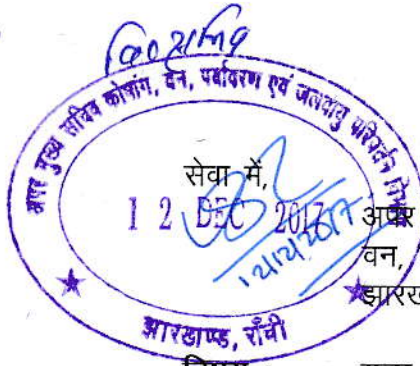 वि०स०
अपर मुख्य सचिव कोषांग, वन, पर्यावरण एवं जलवायु परिवर्तन
सेवा में,
12 DEC 2017
12/12/2017
अपर
वन,
झारख
झारखण्ड, राँची